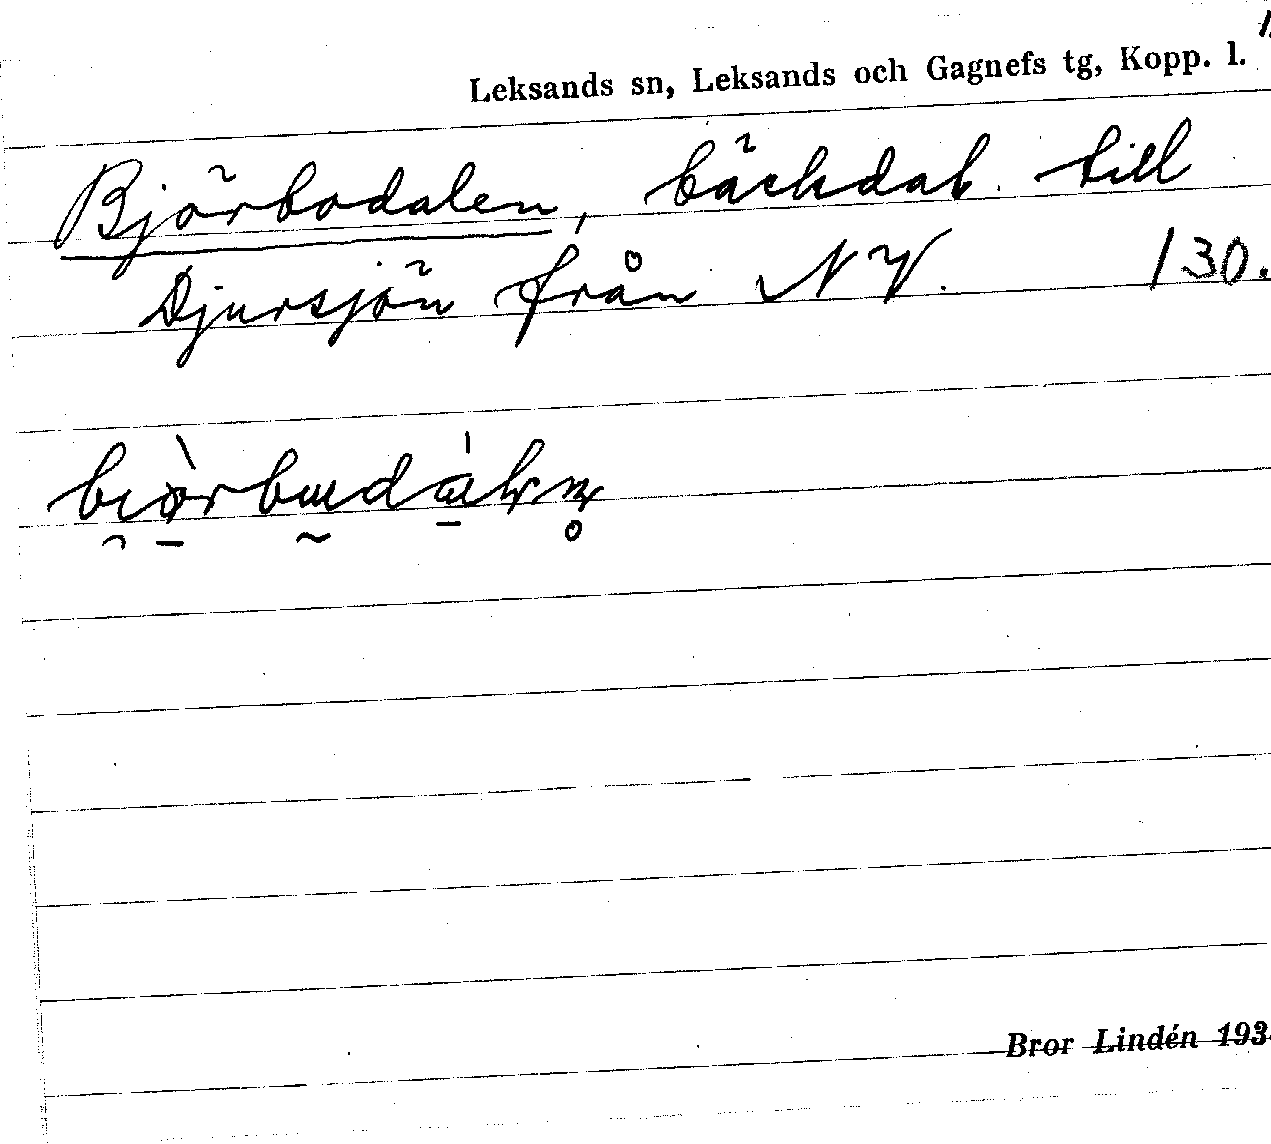 Leksands sn, Leksands och Gagnefs tg, Kopp. l.
Björbodalen, bäckdal till
Djursjön från NV. 130.
Bror Lindén 193